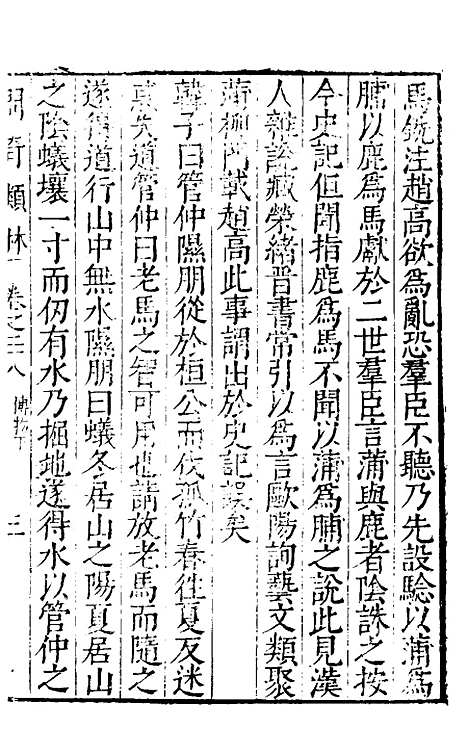 馬銳注趙高欲為亂恐羣臣不聽乃先設驗以蒲為
脯以鹿為馬獻於二世羣臣言蒲與鹿者陰誅之按
今史記但聞指鹿為馬不聞以蒲為脯之說此見漢
人雜說臧榮緒晉書常引以為言歐陽詢藝文類聚
蒲柳門載趙高此事謂出於史記誤矣
韓子曰管仲隰朋從於桓公而伐孤竹春往夏反迷
惑失道管仲曰老馬之智可用也請放老馬而隨之
遂得道行山中無水隰朋曰蟻冬居山之陽夏居山
之陰蟻壤一寸而仞有水乃掘地遂得水以管仲之
類林 卷之三八 博物下 三